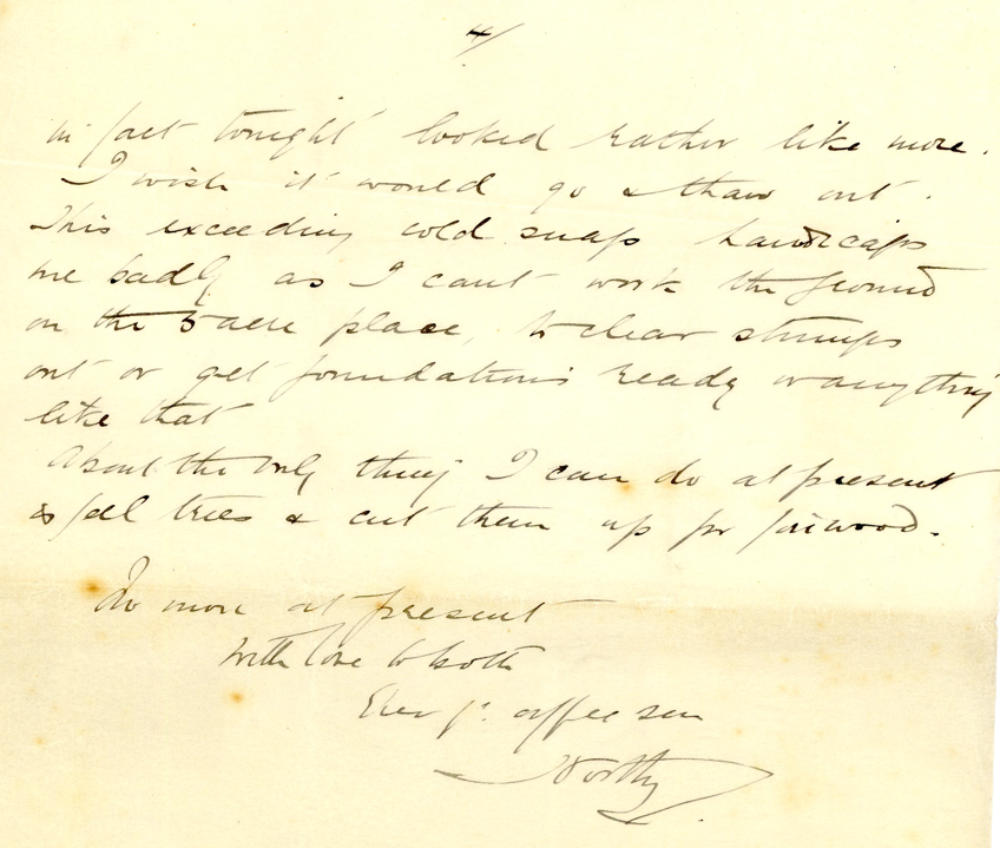 4/
in fact tonight looked rather like more.
I wish it would go & thaw out.
This exceeding cold snap handicaps
me badly as I cant work the ground
on the 5 acre place, to clear stumps
out or get foundations ready or anything
like that
About the only thing I can do at present
is fell trees & cut them up for firewood.
No more at present
With love to both
Ever yr. affec son
Worthy